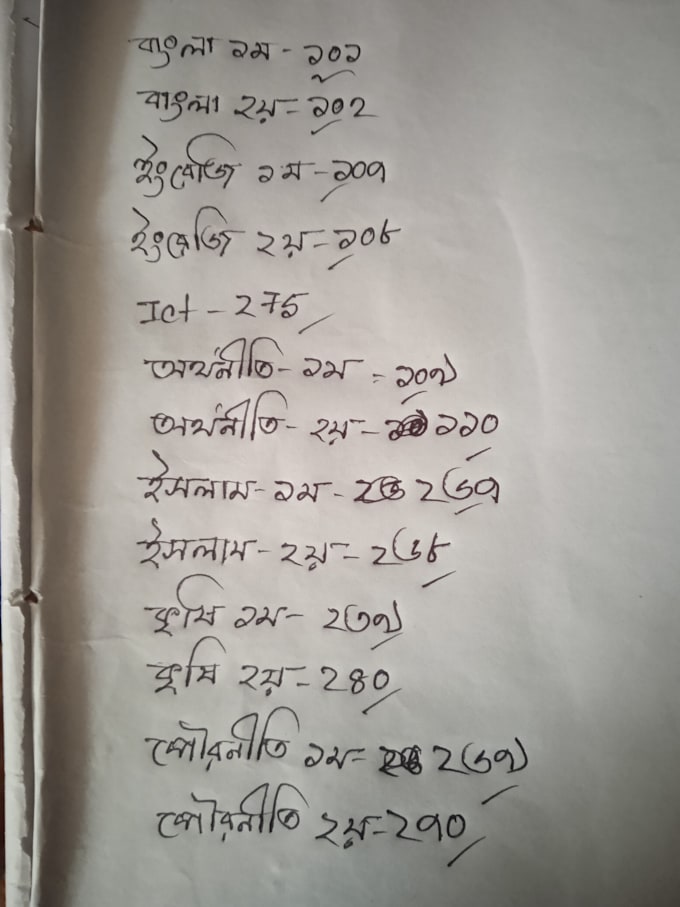 বাংলা ১ম - ১০১
বাংলা ২য় = ১০২
ইংরেজি ১ম - ১০৭
ইংরেজি ২য় = ১০৮
Ict - 275
অর্থনীতি - ১ম = ১০৯
অর্থনীতি - ২য় - ১১০
ইসলাম - ১ম - ২৬৭
ইসলাম - ২য় = ২৬৮
কৃষি ১ম - ২৩৯
কৃষি ২য় = ২৪০
পৌরনীতি ১ম = ২৬৯
পৌরনীতি ২য় = ২৭০